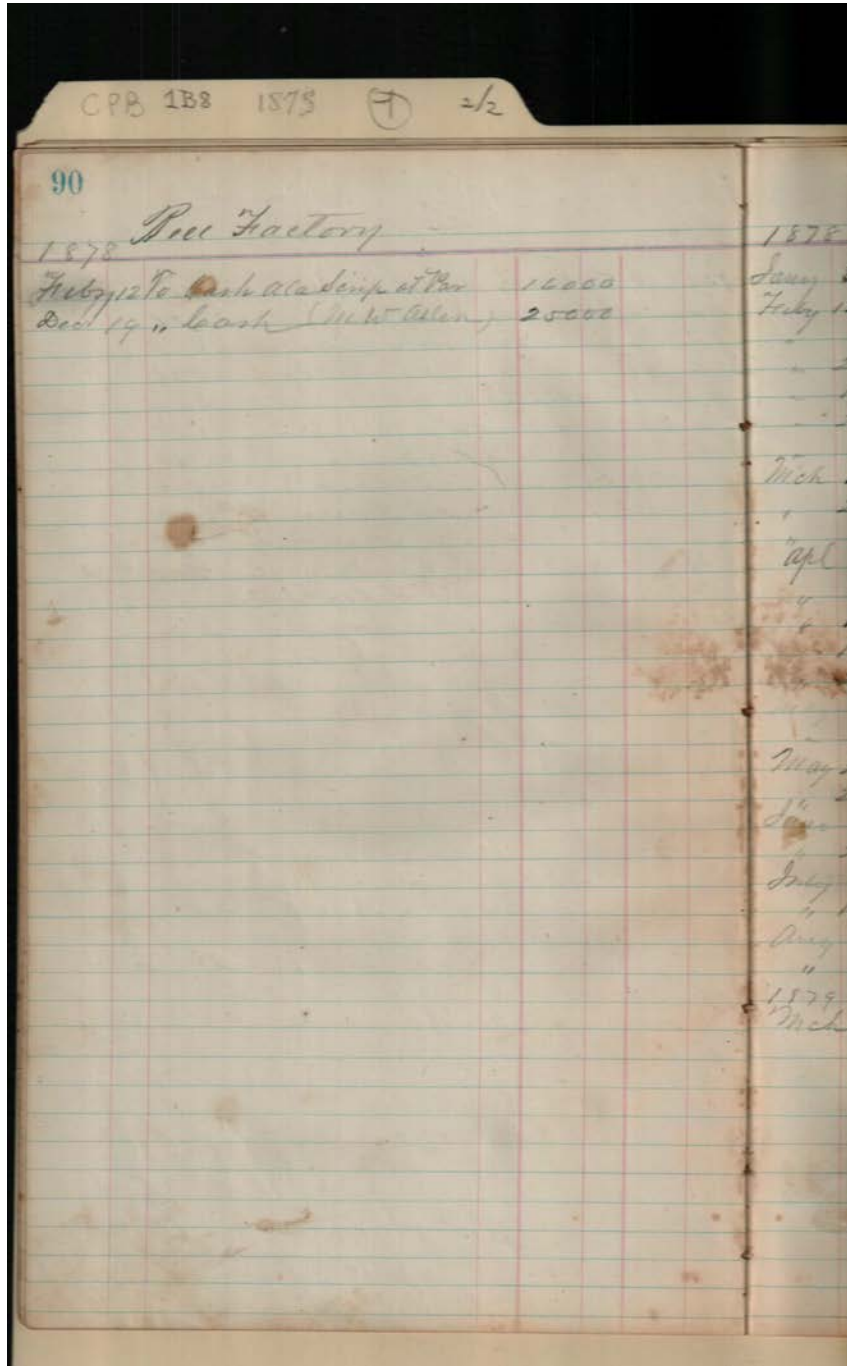 CPB 1B8 1875 1 2/2
90
Bell Factory
1878
Feby 12 To Cash Ala Scrip at Par 16000
Dec 19 " Cash (M W 25000
1878
Jany
Feby
"
"
"
Mch
"
"apl
"
"
"
May
June
"
July
"
Aug
"
1879
Mch